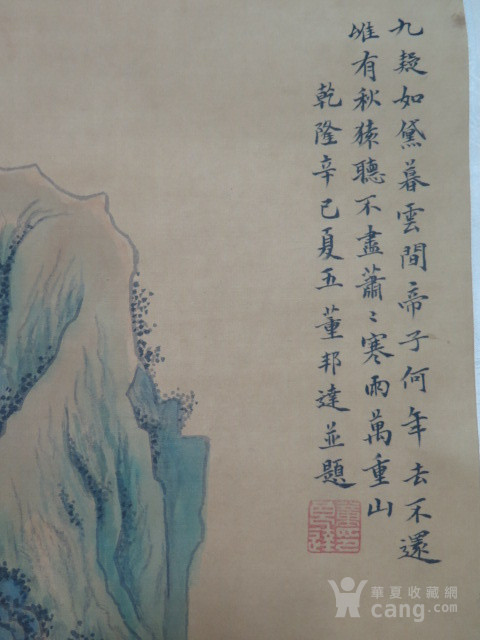 九疑如黛暮雲間帝子何年去不還
惟有秋猿聽不盡蕭〻寒雨萬重山
乾隆辛巳夏五董邦達並題
華夏收藏網
cang.com